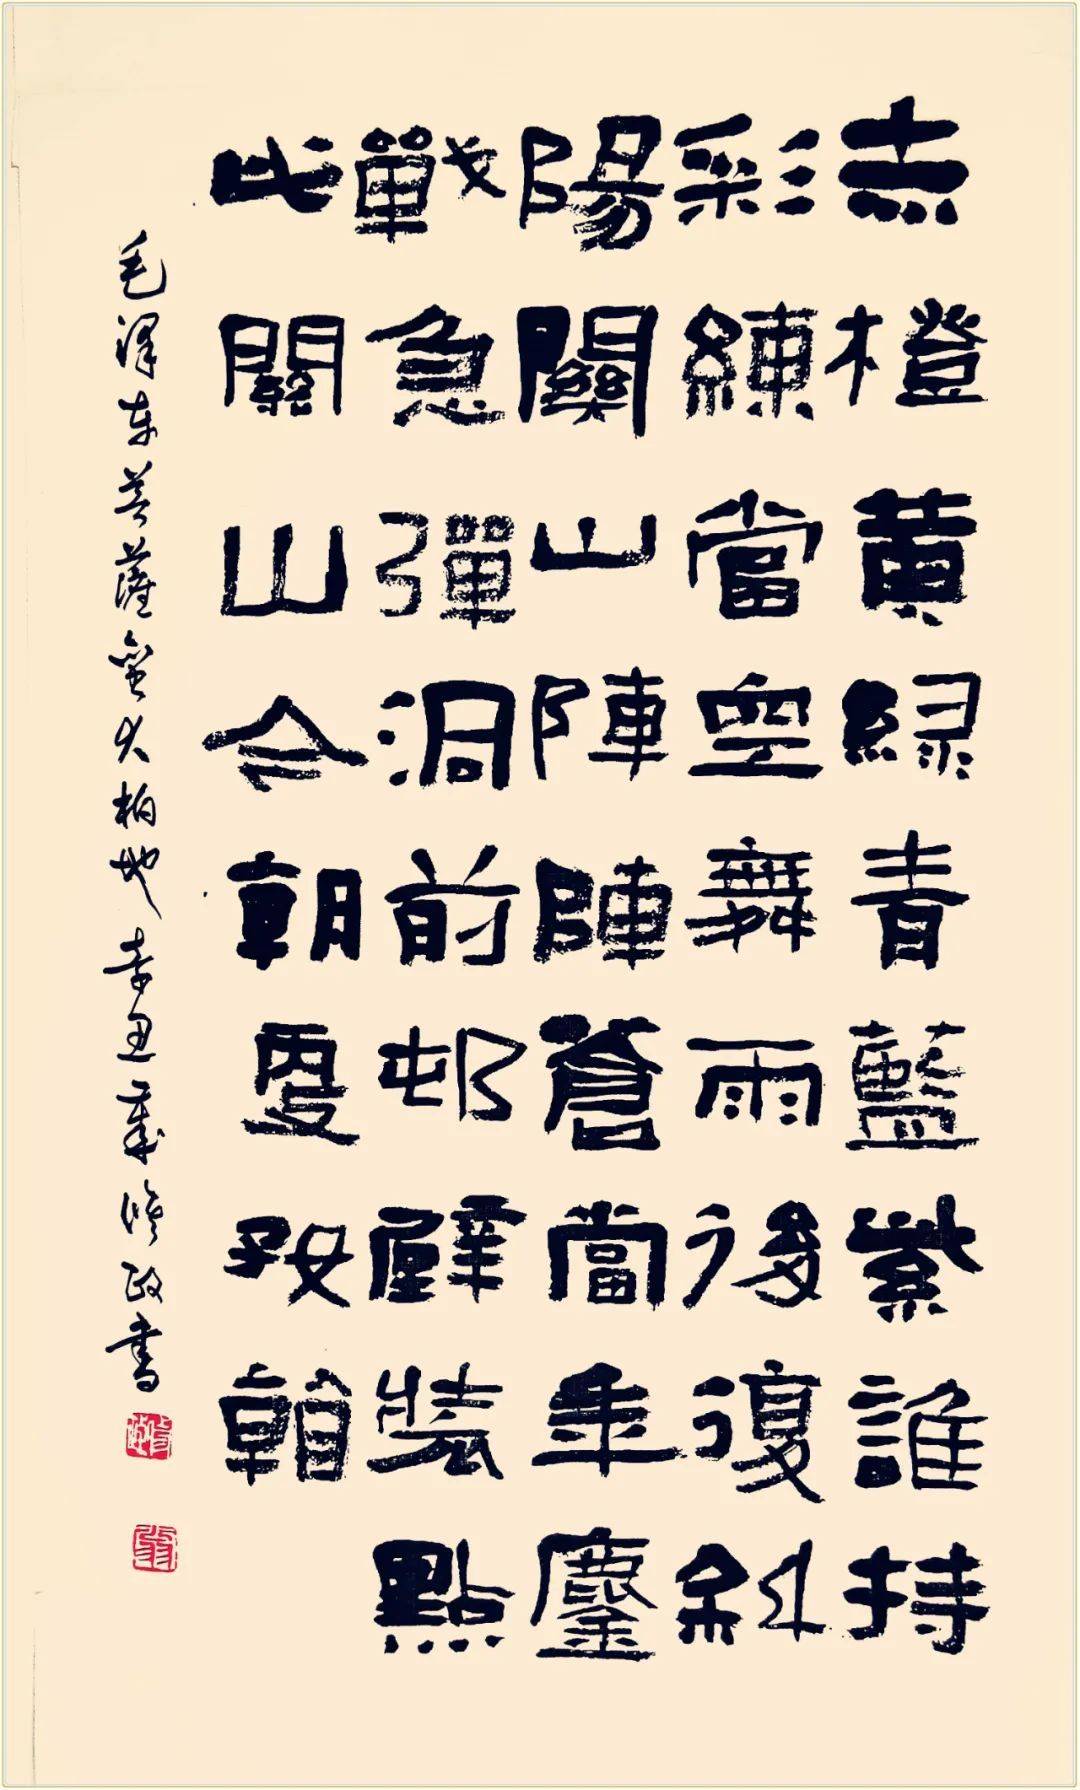 赤橙黄緑青藍紫誰持
彩練當空舞雨後復斜
陽關山陣陣蒼當年鏖
戰急彈洞前邨壁裝點
此關山今朝更好看
毛澤东菩薩蛮大柏地 辛丑年 修政書